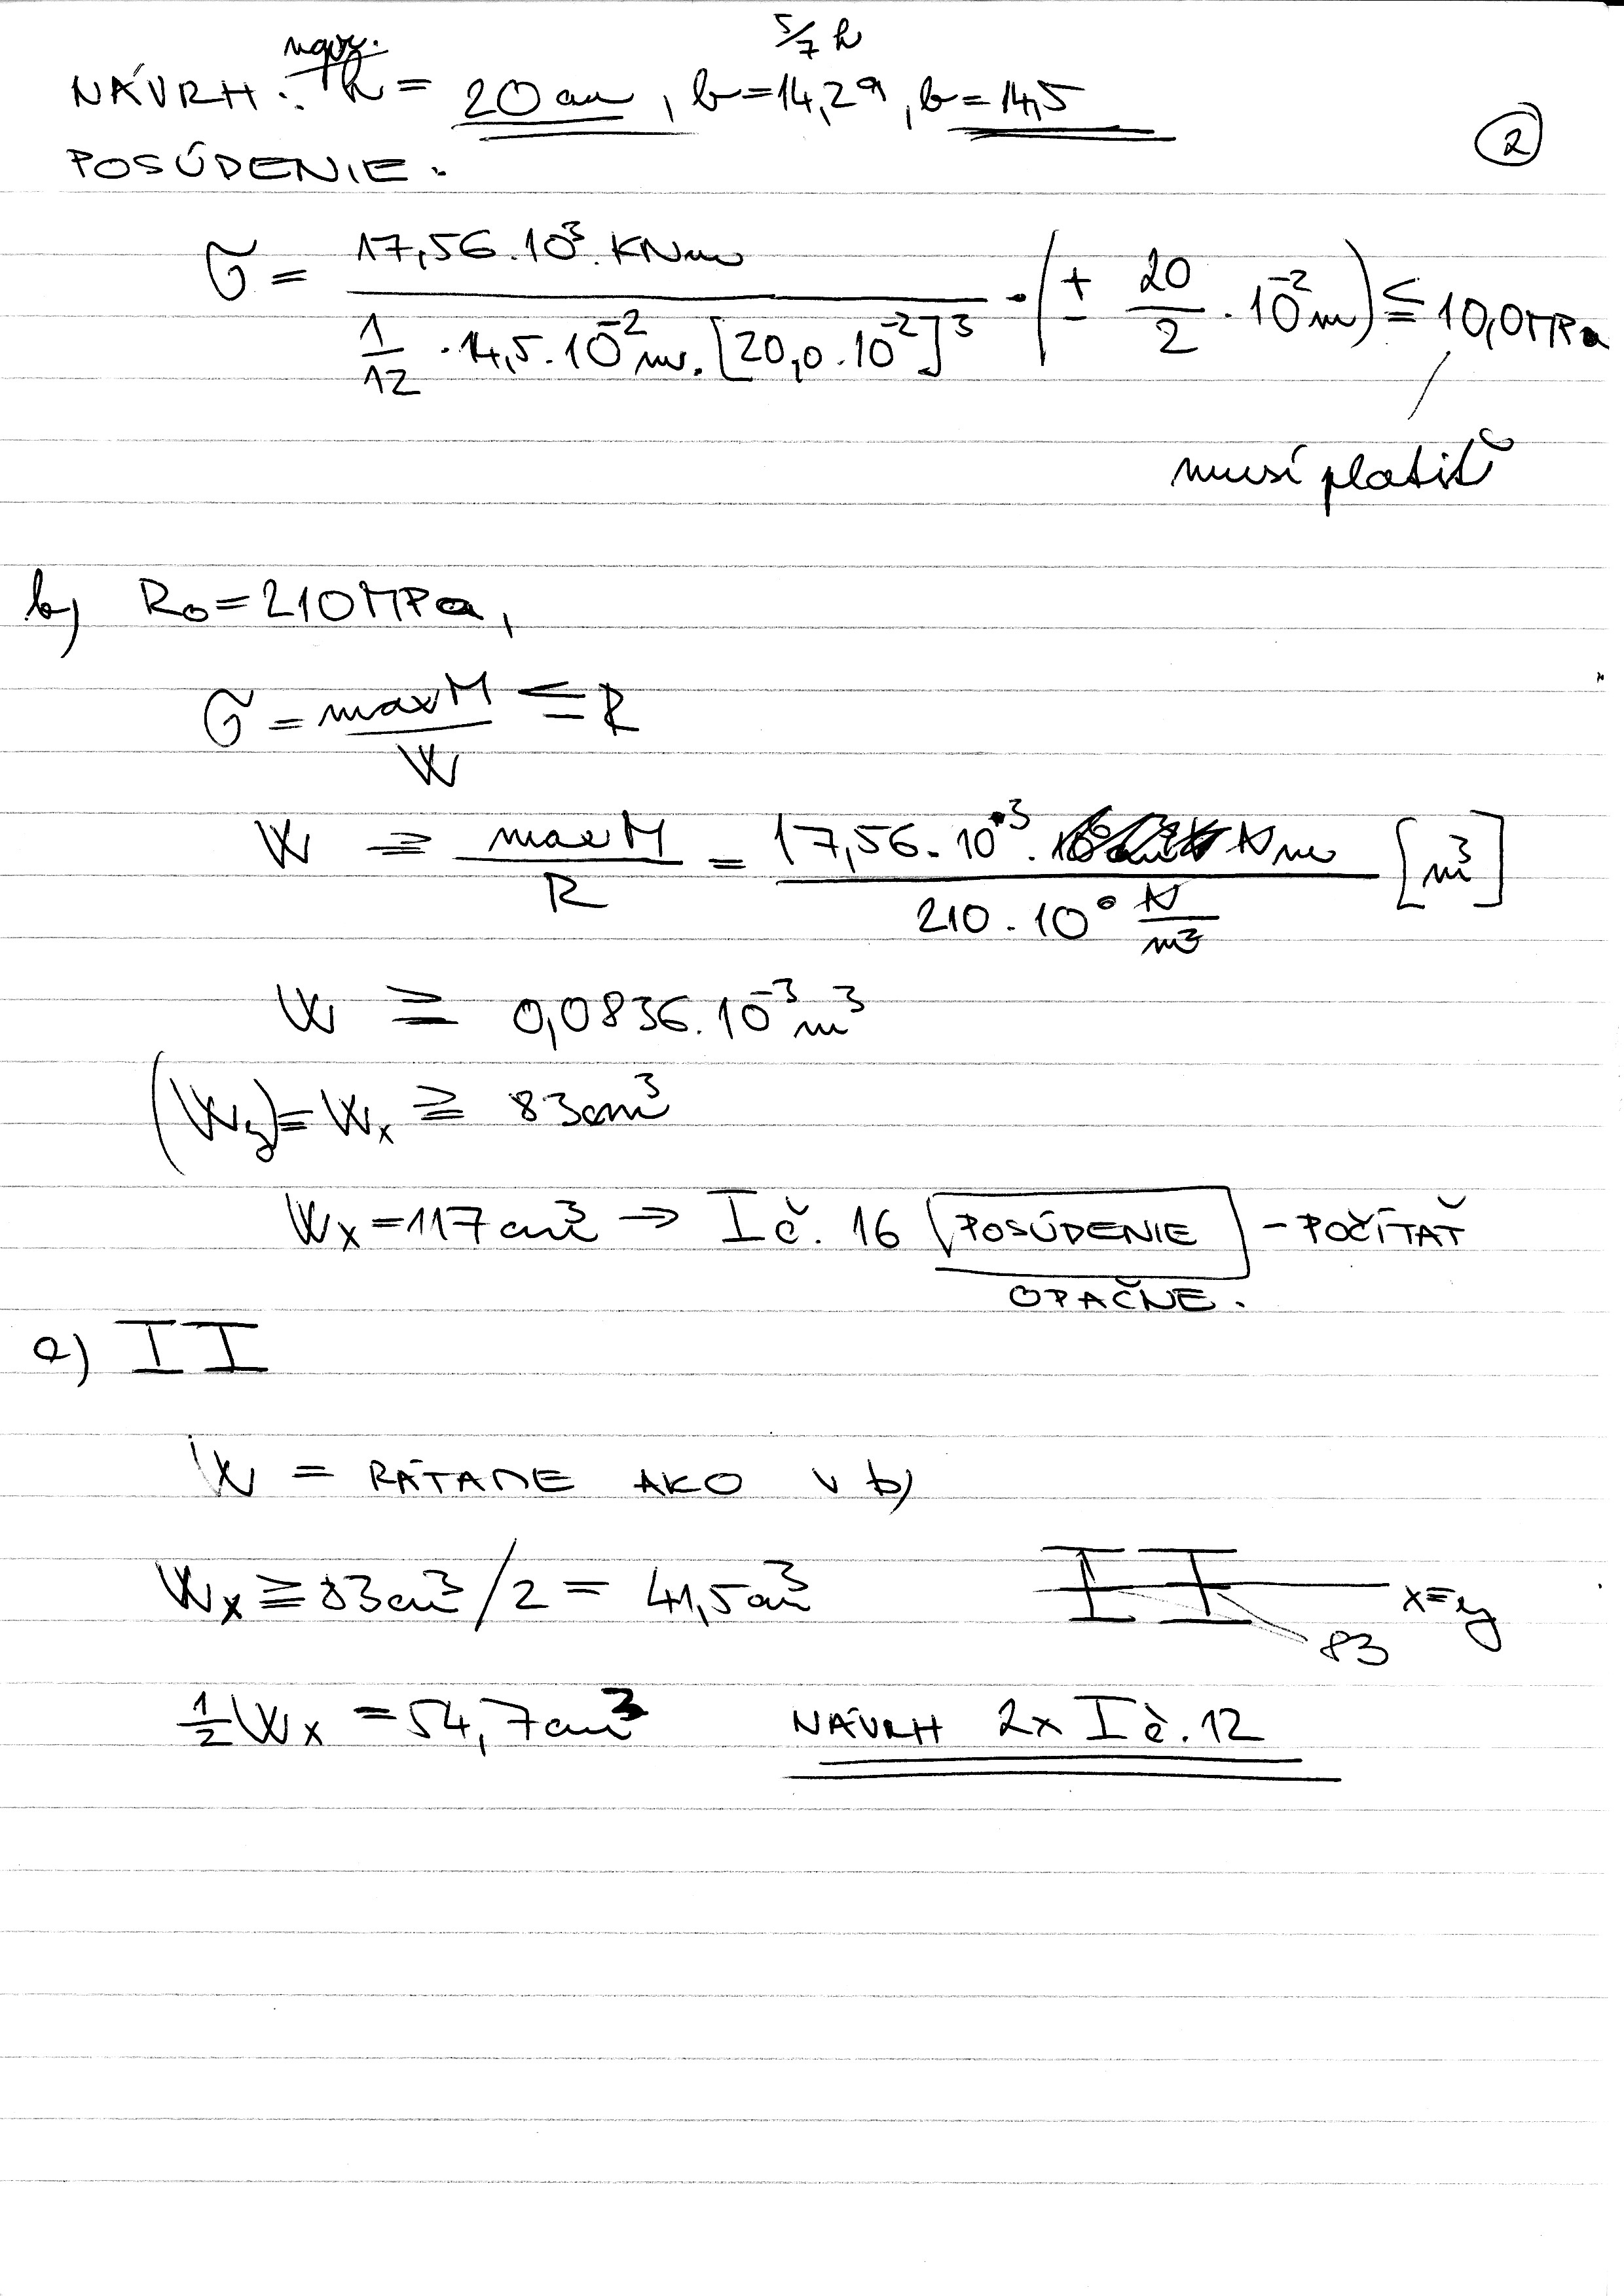 5/7 h
NÁVRH: napr. h = 20 cm, b=14,29, b=14,5
2
POSÚDENIE.
σ = 17,56.10³.KNm / (1/12 · 14,5.10⁻²m. [20,0.10⁻²]³) · (± 20/2 · 10⁻²m) ≤ 10,0MPa
musí platiť
b) R₀=210MPa,
σ = maxM / W ≤ R
W ≥ maxM / R = 17,56.10³. Nm / 210.10⁶ N/m² [m³]
W ≥ 0,0836.10⁻³m³
(Wy)=Wx ≥ 83cm³
Wx=117cm³ → I č. 16 POSÚDENIE – POČÍTAŤ
OPAČNE.
c) I I
W = RÁTAME AKO v b)
Wx ≥ 83cm³/2 = 41,5cm³
x=y
83
1/2 Wx = 54,7cm³ NÁVRH 2x I č.12